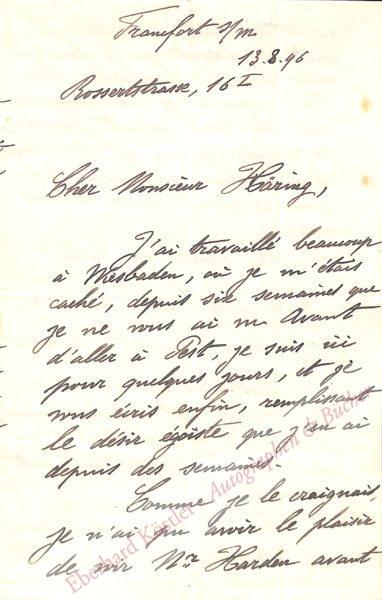 Francfort s/m.
13.8.96
Rossertstrasse, 16 I
Cher Monsieur Häring,
J'ai travaillé beaucoup
à Wiesbaden, où je m'étais
caché, depuis six semaines que
je ne vous ai vu. Avant
d'aller à Pest, je suis ici
pour quelques jours, et je
vous écris enfin, remplissant
le désir égoiste que j'en ai
depuis des semaines.
Comme je le craignais,
je n'ai pu avoir le plaisir
de voir Mr. Harden avant
Eberhard Köstler Autographen & Bücher